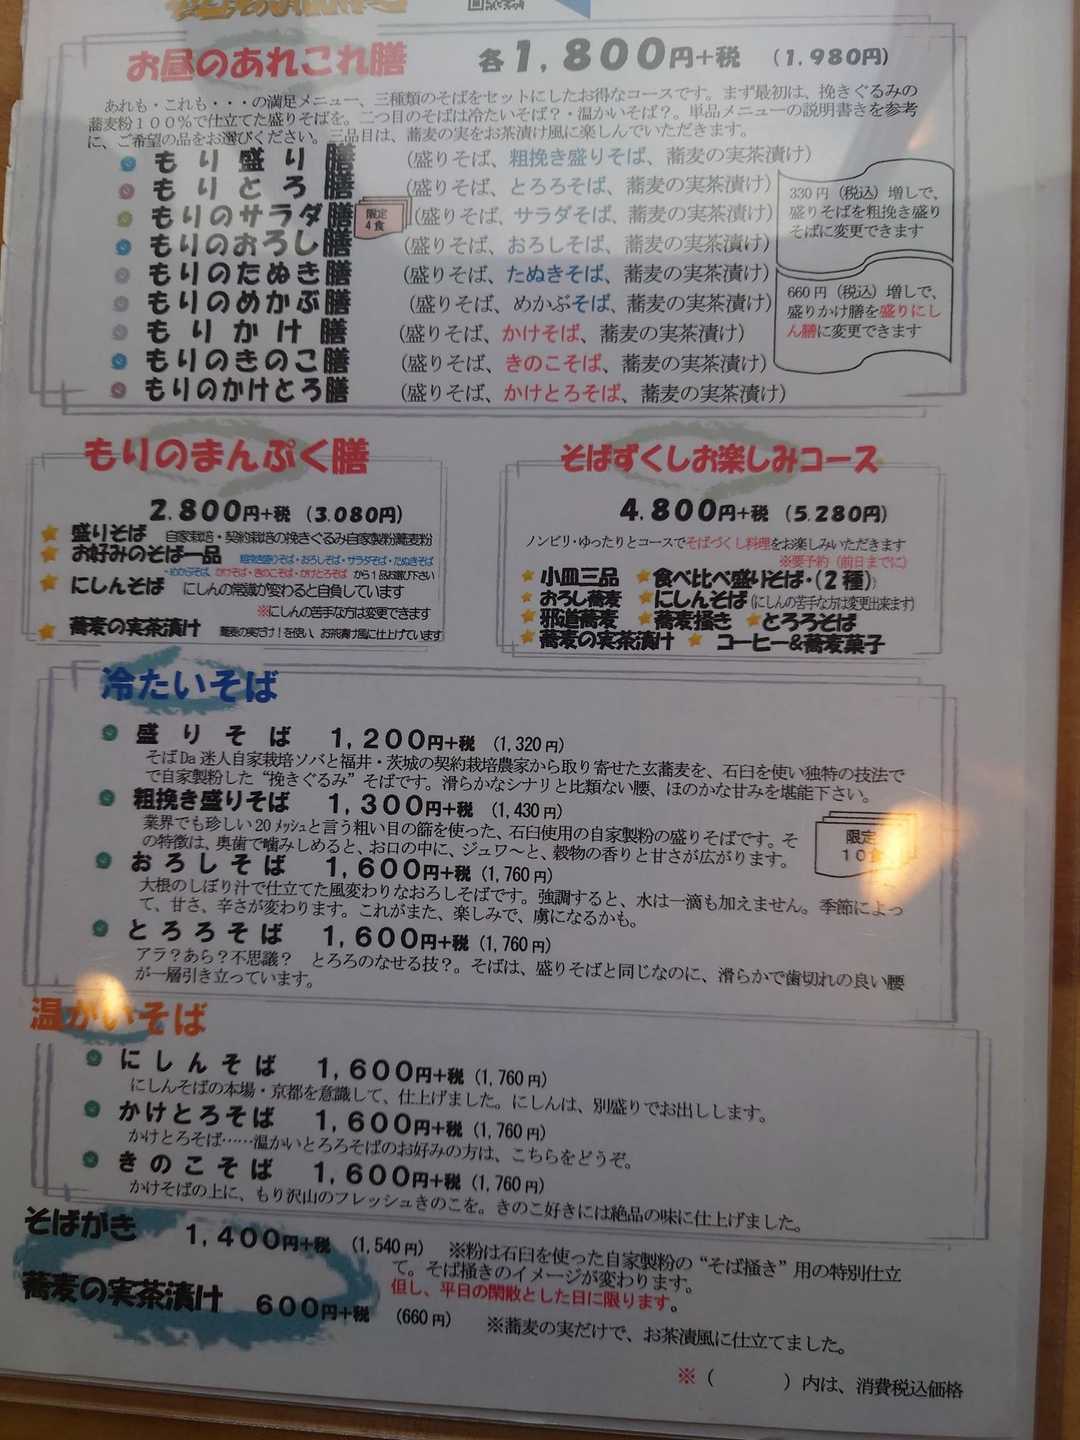 お昼のあれこれ膳 各1,800円+税 (1,980円)
あれも・これも・・・の満足メニュー、三種類のそばをセットにしたお得なコースです。まず最初は、挽きぐるみの
蕎麦粉100%で仕立てた盛りそばを。二つ目のそばは冷たいそば?・温かいそば?。単品メニューの説明書きを参考
に、ご希望の品をお選びください。三品目は、蕎麦の実をお茶漬け風に楽しんでいただきます。
もり盛り膳 (盛りそば、粗挽き盛りそば、蕎麦の実茶漬け)
もりとろ膳 (盛りそば、とろろそば、蕎麦の実茶漬け)
もりのサラダ膳 限定4食 (盛りそば、サラダそば、蕎麦の実茶漬け)
もりのおろし膳 (盛りそば、おろしそば、蕎麦の実茶漬け)
もりのたぬき膳 (盛りそば、たぬきそば、蕎麦の実茶漬け)
もりのめかぶ膳 (盛りそば、めかぶそば、蕎麦の実茶漬け)
もりかけ膳 (盛りそば、かけそば、蕎麦の実茶漬け)
もりのきのこ膳 (盛りそば、きのこそば、蕎麦の実茶漬け)
もりのかけとろ膳 (盛りそば、かけとろそば、蕎麦の実茶漬け)
330円(税込)増しで、
盛りそばを粗挽き盛り
そばに変更できます
660円(税込)増しで、
盛りかけ膳を盛りにし
ん膳に変更できます
もりのまんぷく膳
2,800円+税 (3,080円)
盛りそば 自家栽培・契約栽培の挽きぐるみ自家製粉蕎麦粉
お好みのそば一品 粗挽き盛りそば・おろしそば・サラダそば・たぬきそば
・めかぶそば、かけそば・きのこそば・かけとろそば から1品お選び下さい
にしんそば にしんの常識が変わると自負しています
※にしんの苦手な方は変更できます
蕎麦の実茶漬け 蕎麦の実だけ!を使い、お茶漬け風に仕上げています
そばずくしお楽しみコース
4,800円+税 (5,280円)
ノンビリ・ゆったりとコースでそばづくし料理をお楽しみいただきます
※要予約(前日までに)
小皿三品 食べ比べ盛りそば・(2種)
おろし蕎麦 にしんそば(にしんの苦手な方は変更出来ます)
邪道蕎麦 蕎麦掻き とろろそば
蕎麦の実茶漬け コーヒー&蕎麦菓子
冷たいそば
盛りそば 1,200円+税 (1,320円)
そばDa迷人自家栽培ソバと福井・茨城の契約栽培農家から取り寄せた玄蕎麦を、石臼を使い独特の技法で
で自家製粉した“挽きぐるみ”そばです。滑らかなシナリと比類ない腰、ほのかな甘みを堪能下さい。
粗挽き盛りそば 1,300円+税 (1,430円)
業界でも珍しい20メッシュと言う粗い目の篩を使った、石臼使用の自家製粉の盛りそばです。そ
の特徴は、奥歯で噛みしめると、お口の中に、ジュワ~と、穀物の香りと甘さが広がります。
限定
10食
おろしそば 1,600円+税 (1,760円)
大根のしぼり汁で仕立てた風変わりなおろしそばです。強調すると、水は一滴も加えません。季節によっ
て、甘さ、辛さが変わります。これがまた、楽しみで、虜になるかも。
とろろそば 1,600円+税 (1,760円)
アラ?あら?不思議? とろろのなせる技?。そばは、盛りそばと同じなのに、滑らかで歯切れの良い腰
が一層引き立っています。
温かいそば
にしんそば 1,600円+税 (1,760円)
にしんそばの本場・京都を意識して、仕上げました。にしんは、別盛りでお出しします。
かけとろそば 1,600円+税 (1,760円)
かけとろそば……温かいとろろそばのお好みの方は、こちらをどうぞ。
きのこそば 1,600円+税 (1,760円)
かけそばの上に、もり沢山のフレッシュきのこを。きのこ好きには絶品の味に仕上げました。
そばがき 1,400円+税 (1,540円) ※粉は石臼を使った自家製粉の“そば掻き”用の特別仕立
て。そば掻きのイメージが変わります。
但し、平日の閑散とした日に限ります。
蕎麦の実茶漬け 600円+税 (660円) ※蕎麦の実だけで、お茶漬風に仕立てました。
※( )内は、消費税込価格